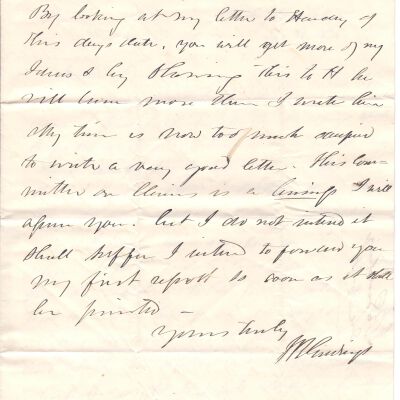 By looking at my letter to Hensley of
this days date, you will get more of my
Ideas & by Showing this to H he
will learn more than I write him
My time is now too much occupied
to write a very good letter. This Com-
mittee on Claims is a I will
assure you. but I do not intend it
shall suffer I intend to forward you
my first report so soon as it shall
be printed –
Yours truly